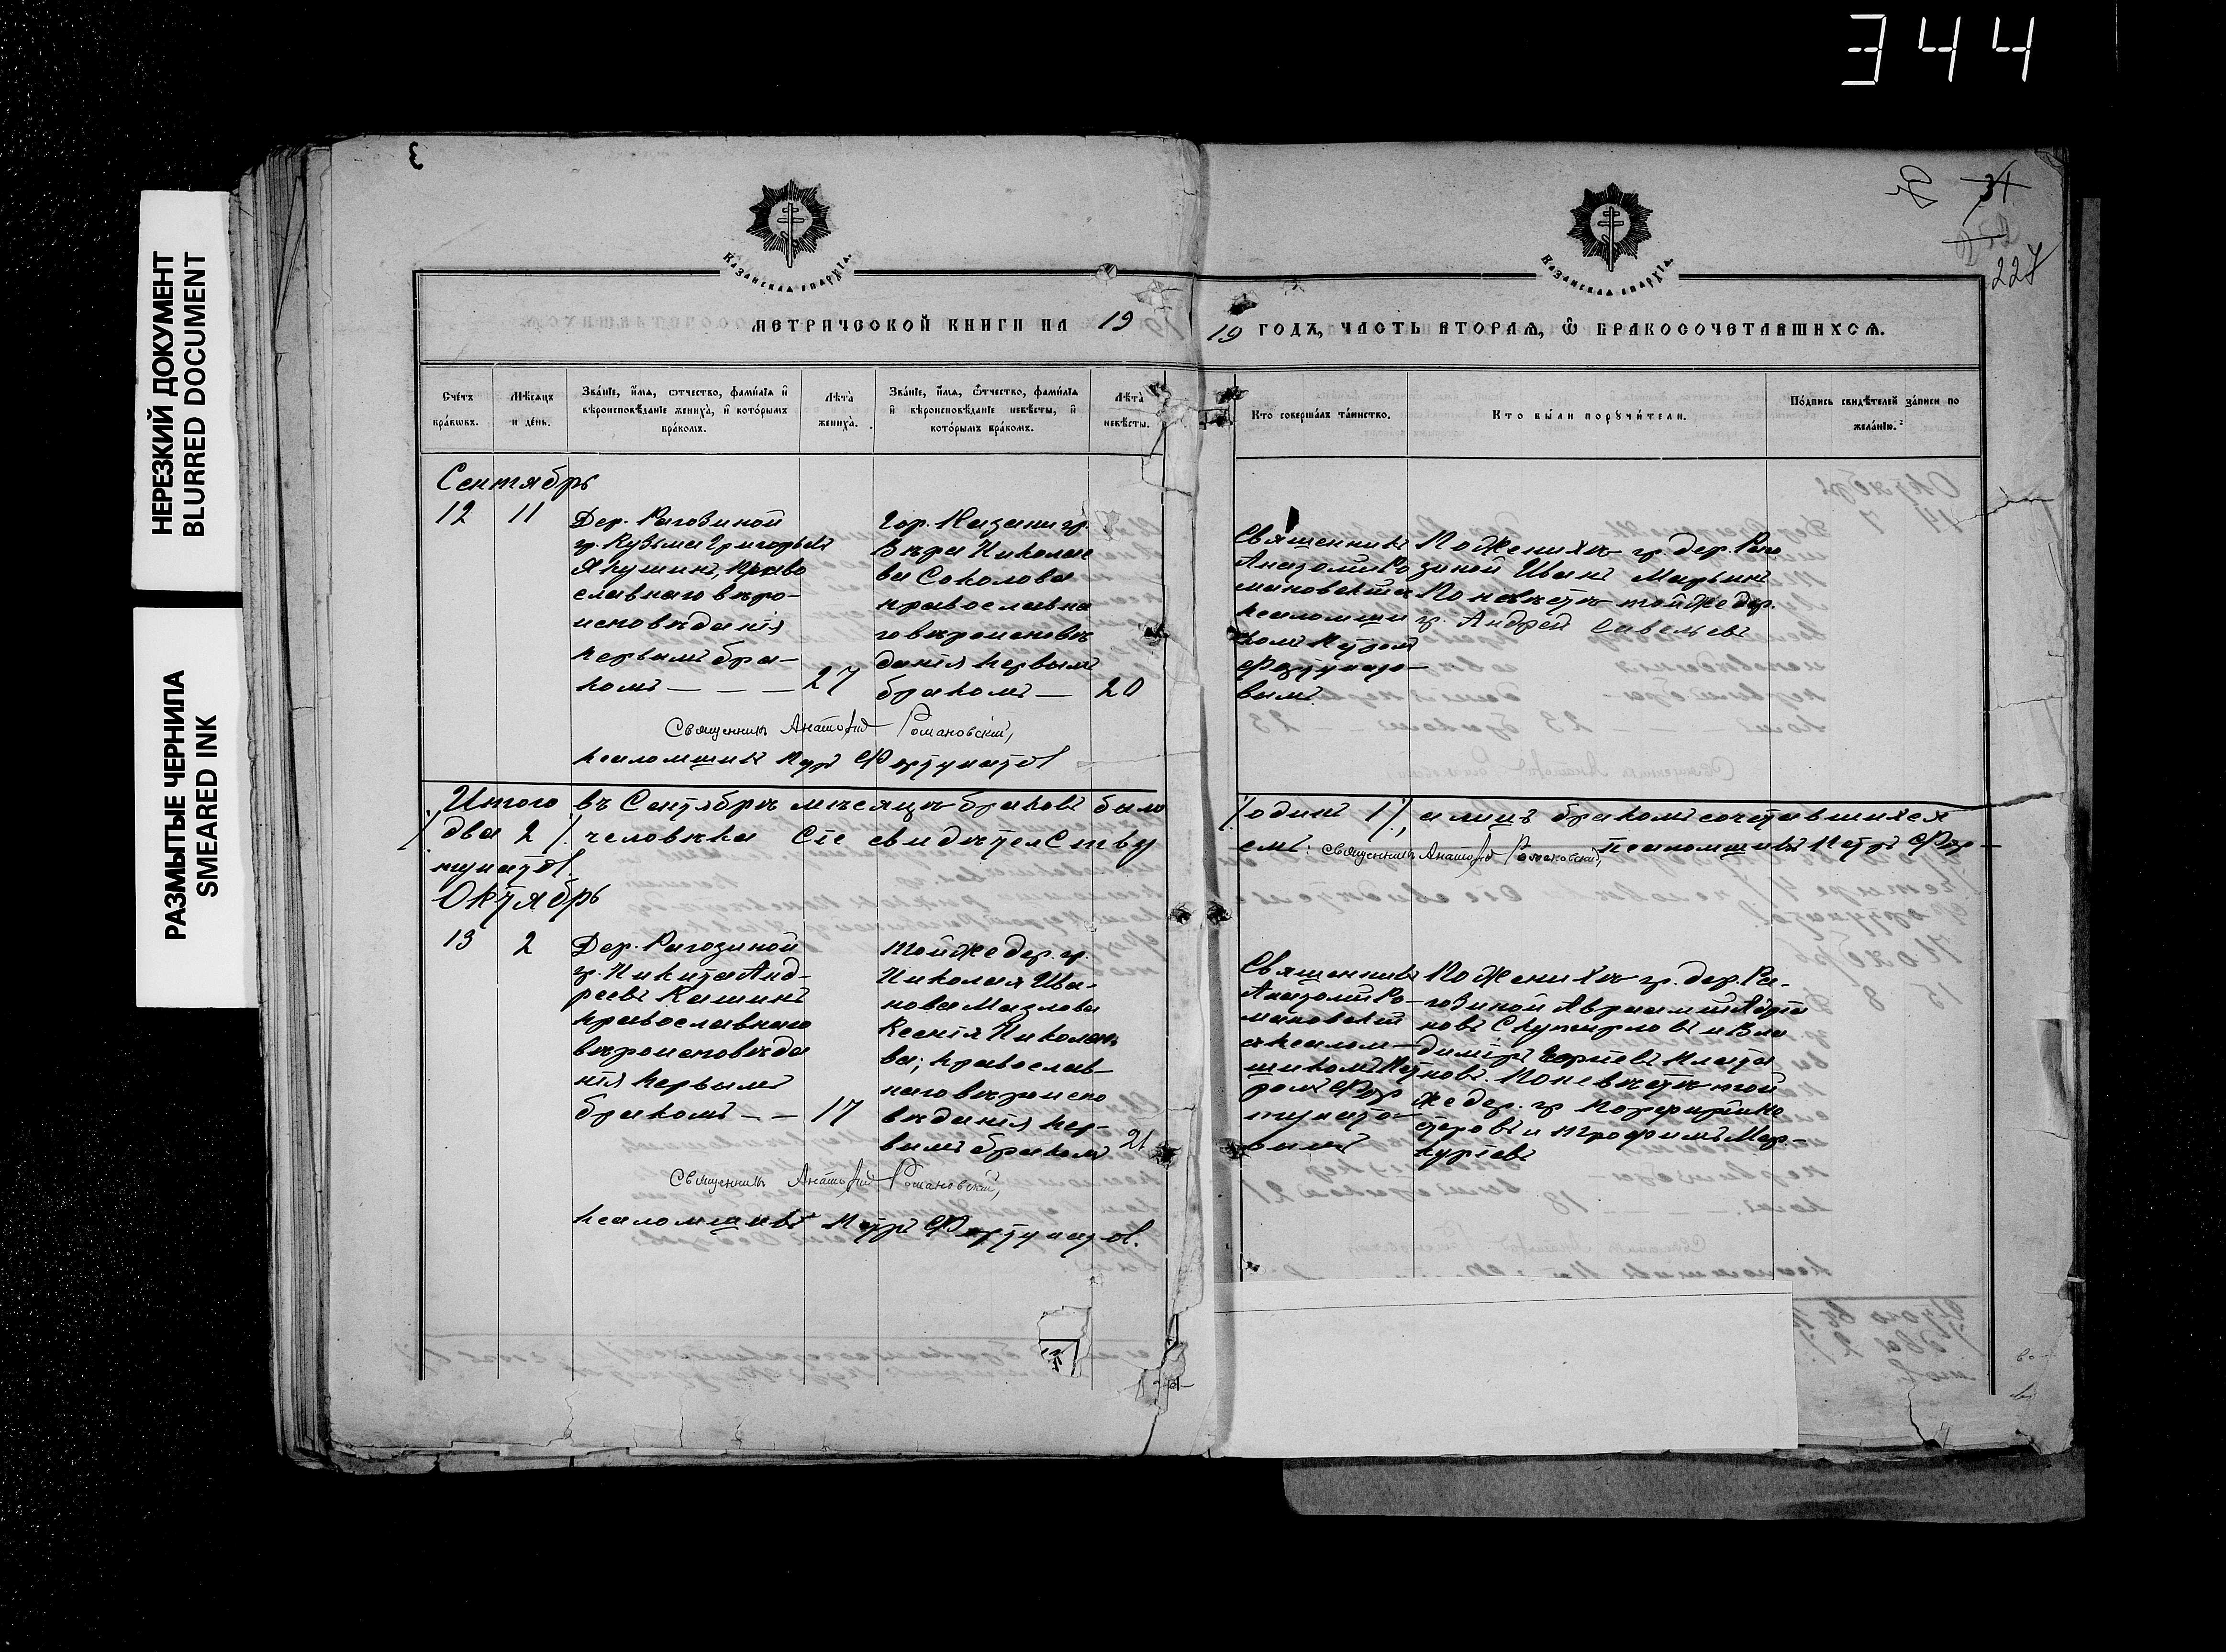 344
НЕРЕЗКИЙ ДОКУМЕНТ
BLURRED DOCUMENT
РАЗМЫТЫЕ ЧЕРНИЛА
SMEARED INK
3
34
227
КАЗАНСКАЯ ЕПАРХІЯ.
КАЗАНСКАЯ ЕПАРХІЯ.
МЕТРИЧЕСКОЙ КНИГИ НА 19
19 ГОДЪ, ЧАСТЬ ВТОРАЯ, Ѿ БРАКОСОЧЕТАВШИХСЯ.
Счетъ браковъ.
Мѣсяцъ и день.
Званіе, имя, отчество, фамилія и вѣроисповѣданіе жениха, и которымъ бракомъ.
Лѣта жениха.
Званіе, имя, отчество, фамилія и вѣроисповѣданіе невѣсты, и которымъ бракомъ.
Лѣта невѣсты.
Кто совершалъ таинство.
Кто были поручители.
Подпись свидѣтелей записи по желанію.
Сентябрь
12
11
Дер. Рагозиной
гр. Кузьма Григорьевъ
Якушинъ, Право
славнаго вѣро-
исповѣданія
первымъ бра-
комъ — — — 27
Гор. Казани гр.
Вѣра Николае
ва Соколова
православна
го вѣроисповѣ
данія первымъ
бракомъ — 20
Священникъ
Анатолій Ро
мановскій
псаломщи
комъ Петром
Фортунато-
вымъ
По Женихѣ гр. дер. Раго
зиной Иванъ Марьинъ
По невѣстѣ тойже дер.
гр. Андрей Савельевъ
Священникъ Анатолій Романовскій,
псаломщикъ Петръ Фортунатов
Итого въ Сентябрѣ мѣсяцѣ браковъ было
/одинъ 1/, а лицъ бракомъ сочетавшихся
/два 2/. человѣка Сіе свидѣтелству
емъ: Священникъ Анатолій Романовскій, псаломщикъ Петръ Фор-
тунатов.
Октябрь
13
2
Дер. Рагозиной
гр. Никита Анд-
реевъ Кашинъ
православнаго
вѣроисповѣда
нія первымъ
бракомъ — — 17
тойже дер. гр.
Николая Ива-
нова Мазлова
Ксенія Николае
ва; православ-
наго вѣроиспо
вѣданія пер-
вымъ бракомъ 21
Священникъ
Анатолій Ро-
мановскій
спсалом-
щикомъ Пет
ромъ Фор
тунато-
вымъ
По Женихѣ гр. дер. Ра-
гозиной
и Вла
диміръ
По невѣстѣ той
же дер. гр.
и Трофимъ Мер-
курьевъ
Священникъ Анатолій Романовскій,
псаломщикъ Петръ Фортунатов.